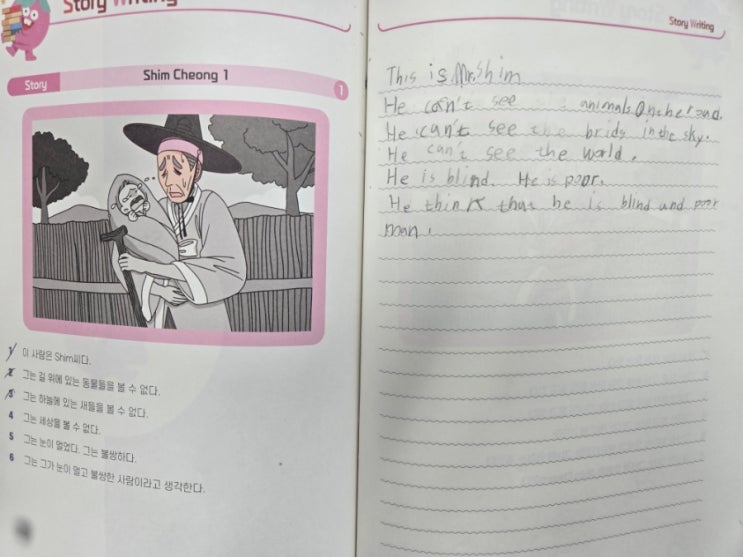 Story Writing
Story
Shim Cheong 1
1
1 이 사람은 Shim씨다.
2 그는 길 위에 있는 동물들을 볼 수 없다.
3 그는 하늘에 있는 새들을 볼 수 없다.
4 그는 세상을 볼 수 없다.
5 그는 눈이 멀었다. 그는 불쌍하다.
6 그는 그가 눈이 멀고 불쌍한 사람이라고 생각한다.
Story Writing
This is Mr.Shim
He can't see animals On the road.
He can't see the brids in the sky.
He can't see the world.
He is blind. He is poor.
He think that he is blind and poor
man.